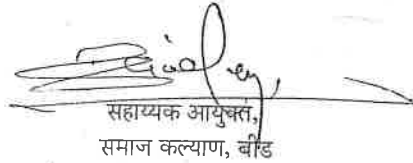 सहाय्यक आयुक्त,
समाज कल्याण, बीड